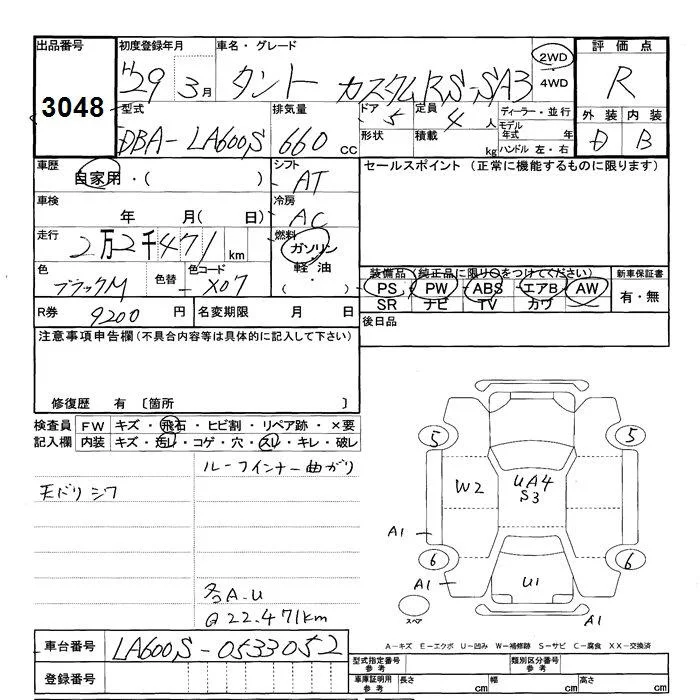 出品番号 初度登録年月 車名・グレード 評価点
3048 H29 3月 タント カスタムRS-SA3 2WD 4WD R
型式 排気量 ドア 定員 ディーラー・並行 外装 内装
DBA-LA600S 660cc 5 4人 モデル年式 年 D B
形状 積載 kg ハンドル 左・右
車歴 自家用・( ) シフト AT セールスポイント (正常に機能するものに限ります)
車検 年 月( 日) 冷房 AC
走行 2万2千471km 燃料 ガソリン 軽油 ・( )
色 ブラックM 色替 - 色コード X07
装備品(純正品に限り○をつけてください) 新車保証書
PS PW ABS エアB AW 有・無
SR ナビ TV カワ
R券 9200円 名変期限 月 日 後日品
注意事項申告欄(不具合内容等は具体的に記入して下さい)
修復歴 有 〔箇所 〕
検査員 FW キズ・飛石・ヒビ割・リペア跡・×要
記入欄 内装 キズ・汚レ・コゲ・穴・スレ・キレ・破レ
ルーフインナー曲がり
天バリシワ
各A-U
@22.471km
5 5
W2 UA4 S3
A1
6 6
A1 U1
スペア A1
車台番号 LA600S-0533052
A-キズ E-エクボ U-凹み W-補修跡 S-サビ C-腐食 XX-交換済
型式指定番号 参考 類別区分番号 参考
登録番号 車庫証明用 参考 長さ cm 幅 cm 高さ cm